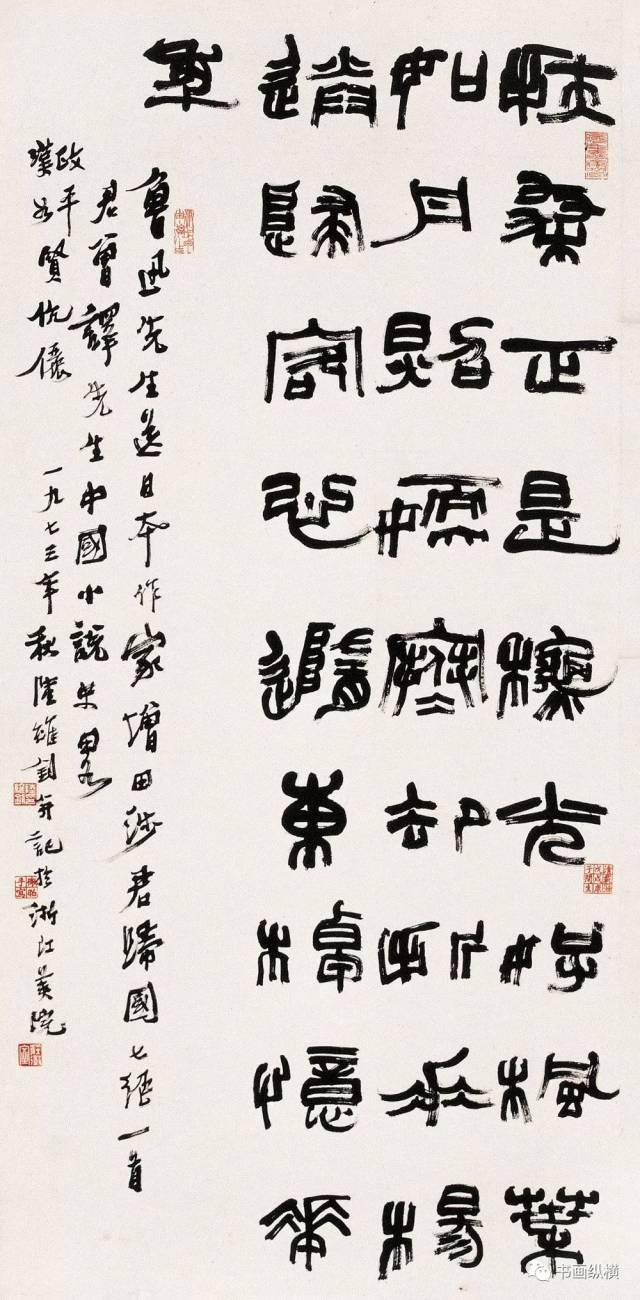 扶桑正是秋光好楓葉
如丹照嫩寒却折垂楊
送歸客心隨東棹憶華
年
魯迅先生送日本作家增田涉君歸國七絕一首
君曾譯先生中國小說史畧
政平
漢賢伉儷 一九七三年秋陸維釗并記於浙江美院
书画纵横